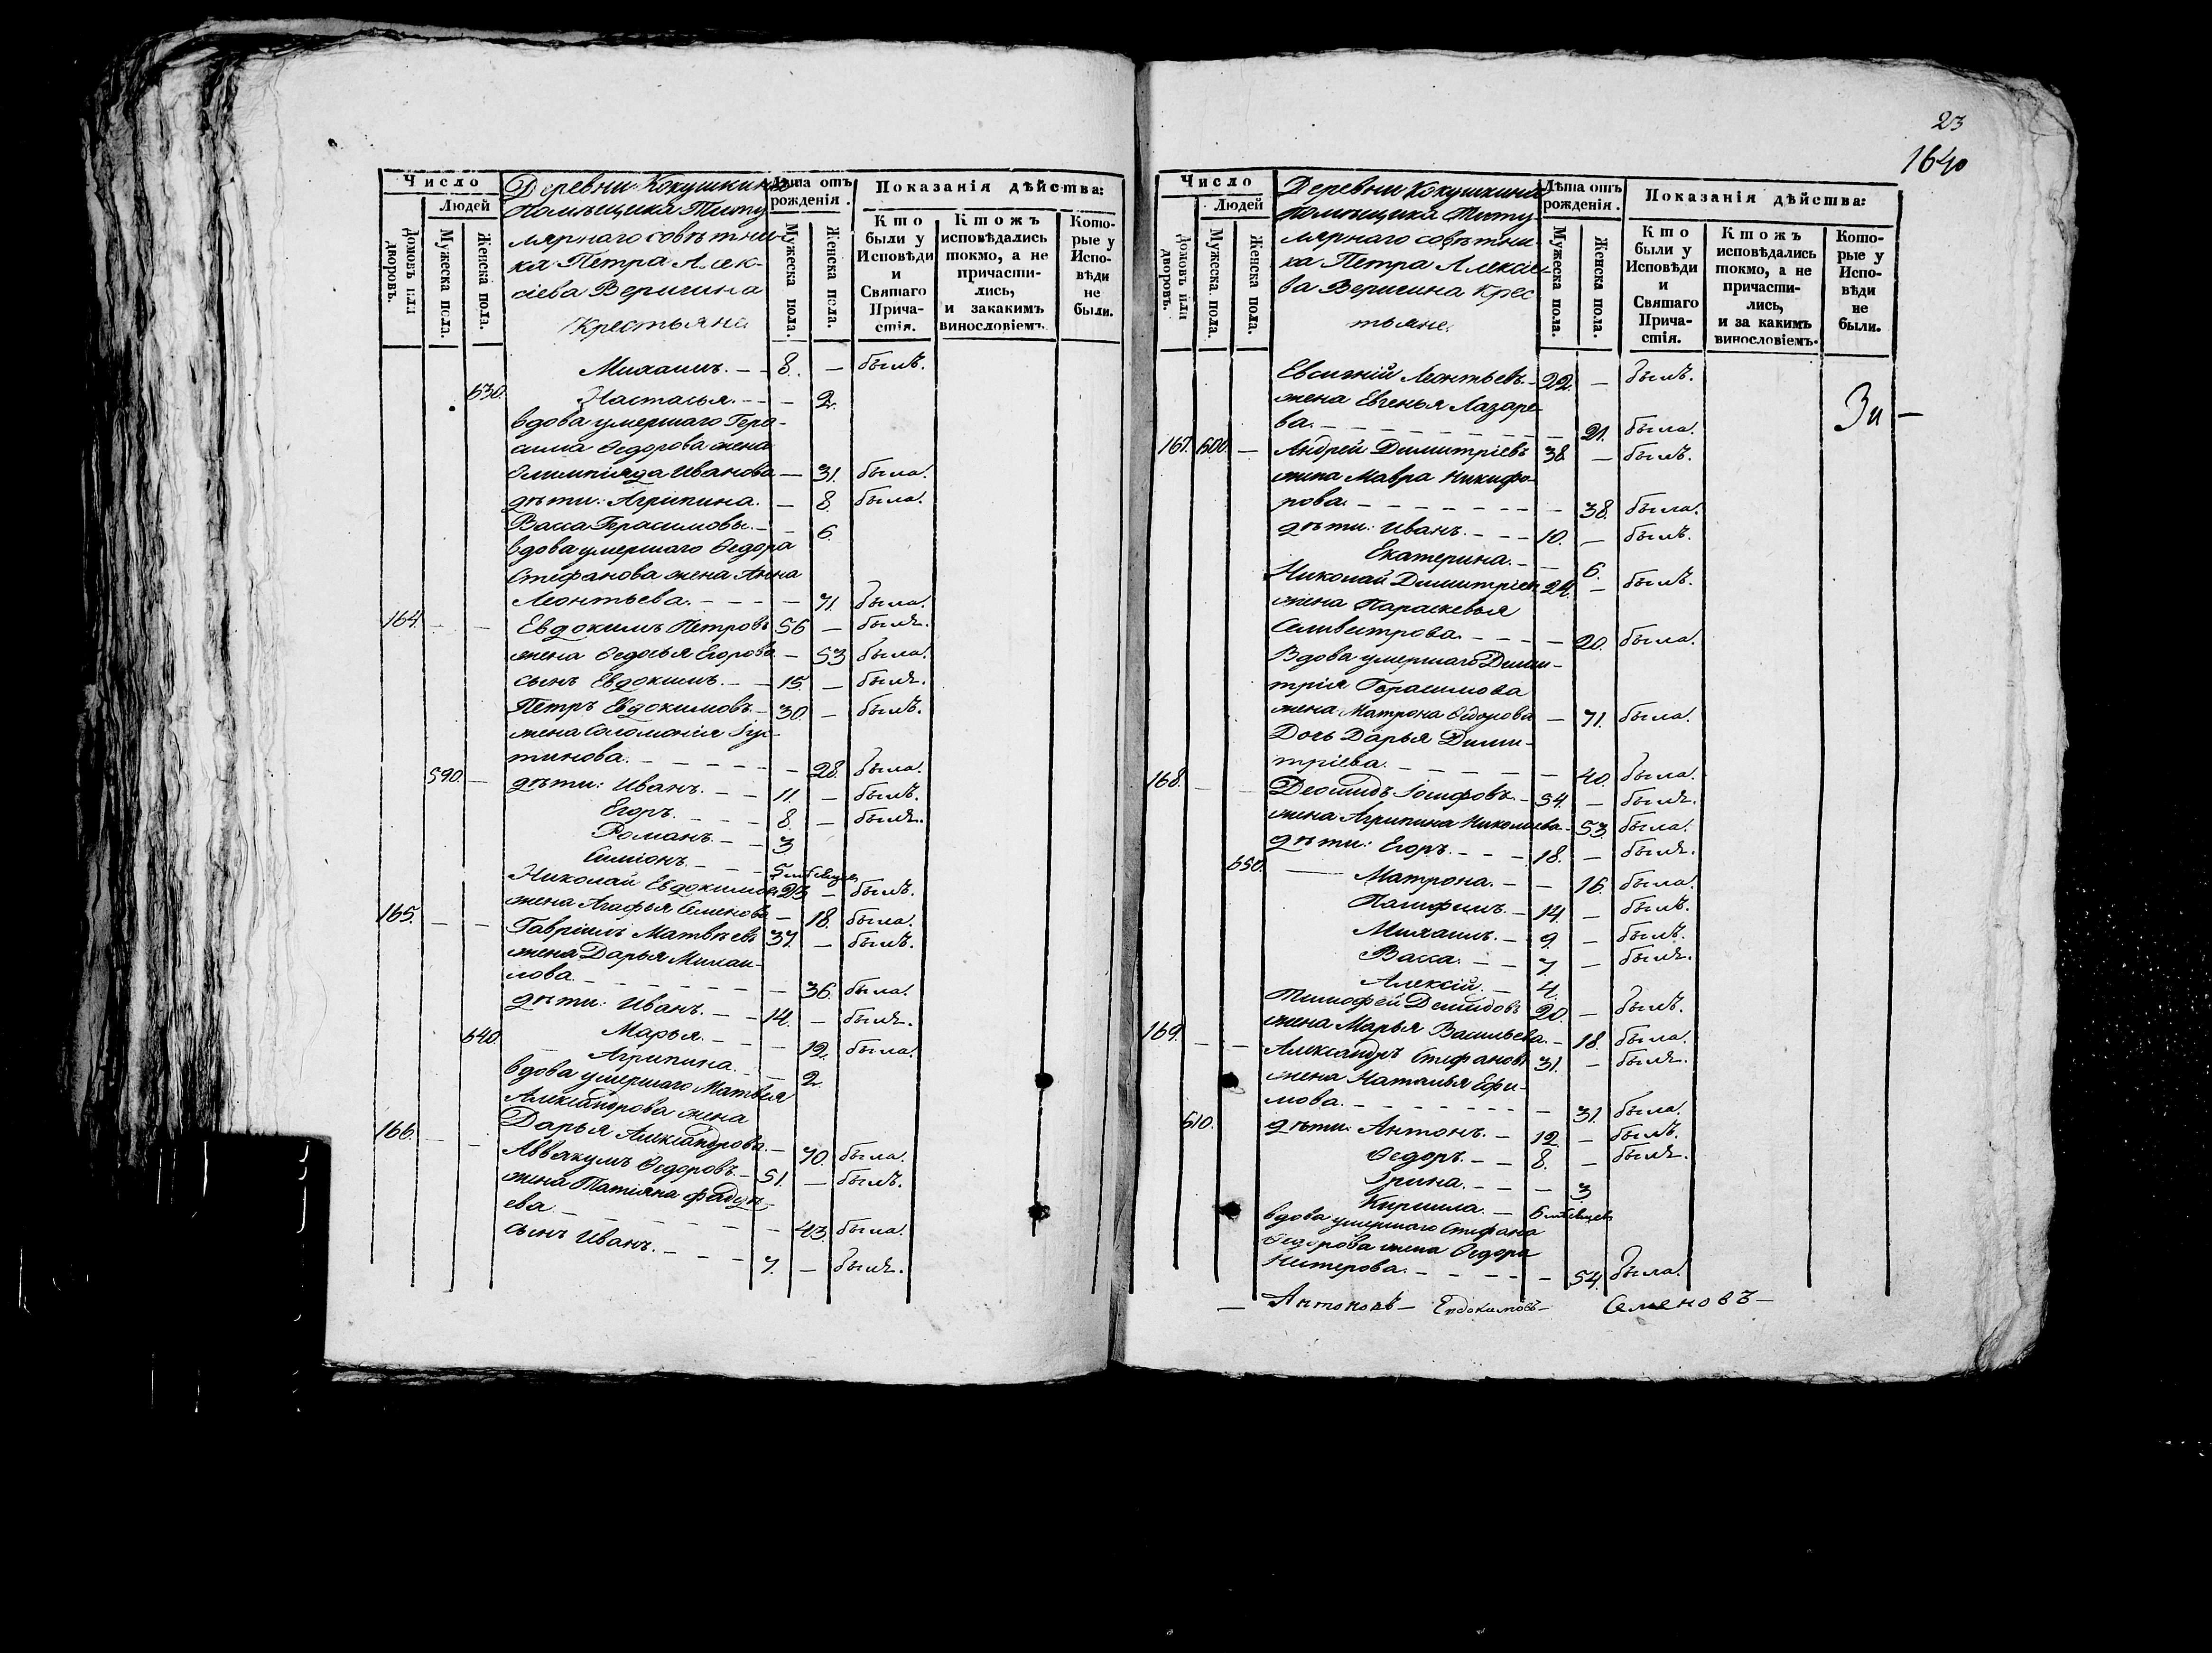 23
1640
Число
Людей
Домовъ или дворовъ.
Мужеска пола.
Женска пола.
Деревни Кокушкина
помѣщика Титу
лярнаго совѣтни
ка Петра Алек
сіева Веригина
Крестьяне
Лѣта отъ рожденія.
Мужеска пола.
Женска пола.
Показанія дѣйства:
Кто были у Исповѣди и Святаго Прича-стія.
Ктожъ исповѣдались токмо, а не причасти-лись, и закакимъ винословіемъ.
Кото-рые у Испо-вѣди не были.
Михаилъ. – – 8. – былъ.
630. Настасья. – – – 2.
вдова умершаго Гера-
сима Ѳедорова жена
Олимпіяда Иванова – 31. была.
дѣти: Агрипина. – 8. была.
Васса Герасимовы. – – 6.
вдова умершаго Ѳедора
Стефанова жена Анна
Леонтьева. – – – – 71. была.
164. – – Евдокимъ Петровъ 56 – былъ.
жена Ѳедосья Егорова – 53 была.
сынъ Евдокимъ. – – 15. – былъ.
Петръ Евдокимовъ. – 30. – былъ.
жена Соломонія Іус-
тинова. – – – – – – 28. была.
590. – дѣти: Иванъ. – – 11. – былъ.
Егоръ. – – – 8. – былъ.
Романъ. – – 3
Симіонъ. – – 5 мѣсяцевъ
Николай Евдокимовъ 23 – былъ.
жена Агафья Семенова – 18. была.
165. – – Гавріилъ Матвѣевъ 37. – былъ.
жена Дарья Михаи-
лова. – – – – – – 36. была.
дѣти: Иванъ. – – 14. – былъ.
640. Марья. – – – 12. была.
Агрипина. – – 2.
вдова умершаго Матвѣя
Александрова жена
Дарья Александрова. – 70. была.
166. – – Аввакумъ Ѳедоровъ. – 51. – былъ.
жена Татіяна Фадѣ
ева. – – – – – – 43. была.
сынъ Иванъ. – – – 7. – былъ.
Число
Людей
Домовъ или дворовъ.
Мужеска пола.
Женска пола.
Деревни Кокушкина
помѣщика Титу-
лярнаго совѣтни-
ка Петра Алексіе-
ва Веригина Крес
тьяне.
Лѣта отъ рожденія.
Мужеска пола.
Женска пола.
Показанія дѣйства:
Кто были у Исповѣди и Святаго Прича-стія.
Ктожъ исповѣдались токмо, а не причасти-лись, и за какимъ винословіемъ.
Кото-рые у Испо-вѣди не были.
Евсигній Леонтьевъ. – 22. – былъ.
жена Евгенья Лазаре-
ва. – – – – – – 21. была.
167. 600. – Андрей Димитріевъ 38 – былъ.
жена Мавра Никифо-
рова. – – – – – – – 38. была.
дѣти: Иванъ. – – – 10. – былъ.
Екатерина. – – 6.
Николай Димитріевъ 24. – былъ.
жена Параскевья
Селивестрова. – – – – 20. была.
Вдова умершаго Дими-
трія Герасимова
жена Матрона Ѳедорова – 71. была.
Дочь Дарья Дими-
тріева. – – – – – – 40. была.
168. – – Деомидъ Іосифовъ. – 54. – былъ.
жена Агрипина Николаева – 53. была.
дѣти: Егоръ. – – – 18. – былъ.
650. – Матрона. – – 16. была.
Памфилъ. – 14. – былъ.
Михаилъ. – 9. – былъ.
Васса. – – 7. – былъ.
Алексій. – 4.
Тимофей Демидовъ 20. – былъ.
жена Марья Васильева. – 18. была.
169. – – Александръ Стефановъ 31. – былъ.
жена Наталья Ефи-
мова. – – – – – – – 31. была.
610. дѣти: Антонъ. – 12. – былъ.
Ѳедоръ. – – 8. – былъ.
Ірина. – – – 3.
Кирилла. – 6 мѣсяцевъ
вдова умершаго Стефана
Ѳедорова жена Ѳедора
Нестерова. – – – – – 54. была.
– Антоновъ – Евдокимовъ – Семеновъ –